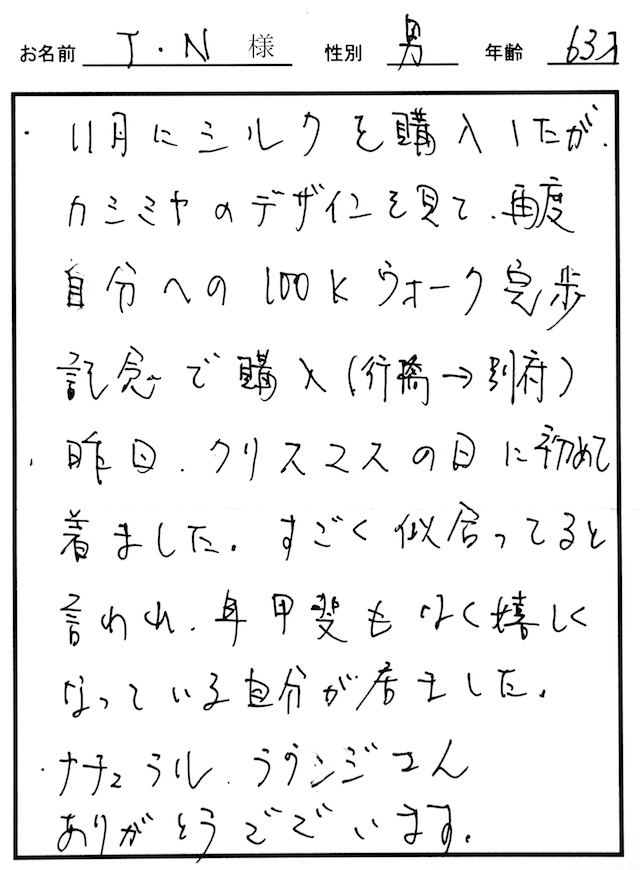 お名前 T・N 様 性別 男 年齢 63才
・11月にシルクを購入したが、
カシミヤのデザインを見て、再度
自分への100kウォーク完歩
記念で購入(行橋→別府)
・昨日、クリスマスの日に初めて
着ました。すごく似合ってると
言われ、年甲斐もなく嬉しく
なっている自分が居ました。
・ナチュラルラウンジさん
ありがとうでございます。